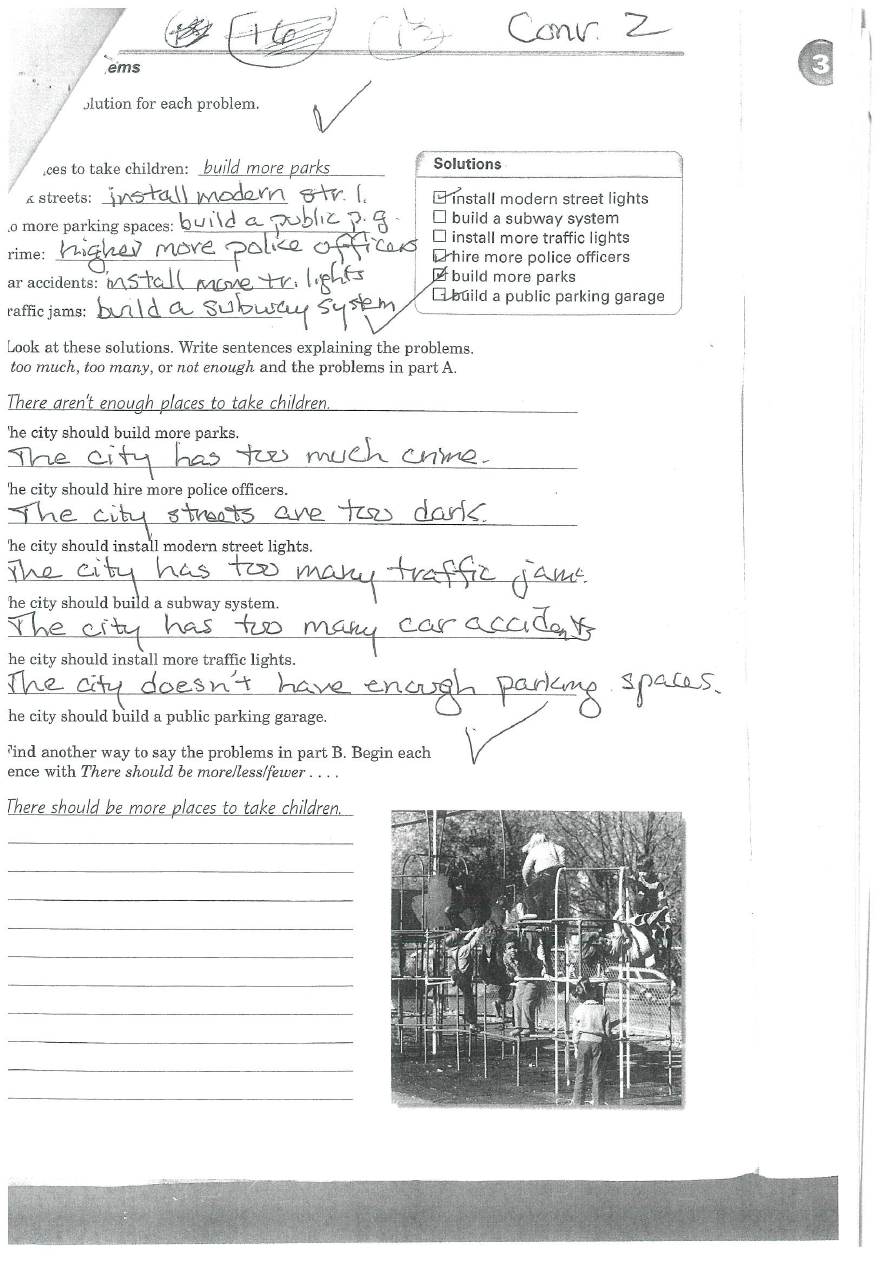 +6 Conv. 2
3
ems
olution for each problem.
ces to take children: build more parks
streets: install modern str. l.
o more parking spaces: build a public p. g.
rime: higher more police officers
ar accidents: install more tr. lights
raffic jams: build a subway system
Solutions
install modern street lights
build a subway system
install more traffic lights
hire more police officers
build more parks
build a public parking garage
Look at these solutions. Write sentences explaining the problems.
too much, too many, or not enough and the problems in part A.
There aren't enough places to take children.
he city should build more parks.
The city has too much crime.
he city should hire more police officers.
The city streets are too dark.
he city should install modern street lights.
The city has too many traffic jams.
he city should build a subway system.
The city has too many car accidents
he city should install more traffic lights.
The city doesn't have enough parking spaces.
he city should build a public parking garage.
Find another way to say the problems in part B. Begin each
ence with There should be more/less/fewer . . . .
There should be more places to take children.